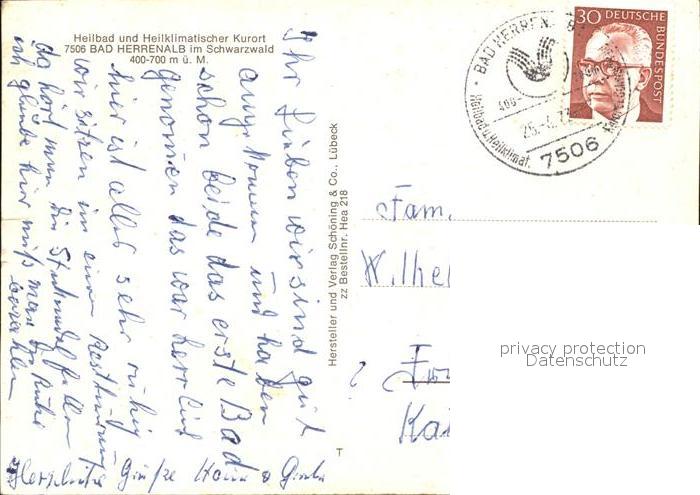 Heilbad und Heilklimatischer Kurort
7506 BAD HERRENALB im Schwarzwald
400-700 m ü. M.
Ihr Lieben wir sind gut
angekommen und haben
schon beide das erste Bad
genommen das war herrlich
hier ist alles sehr ruhig
wir sitzen in einem
da hört man die Stecknadel fallen
ich glaube hier muß man die Ruhe
bezahlen
Herzliche Grüße
Hersteller und Verlag Schöning & Co., Lübeck
zz Bestellnr. Hea 218
T
30 DEUTSCHE BUNDESPOST
BAD HERRENALB
Heilbad u. Heilklimat.
7506
Fam.
Wilhel
Kai
privacy protection
Datenschutz